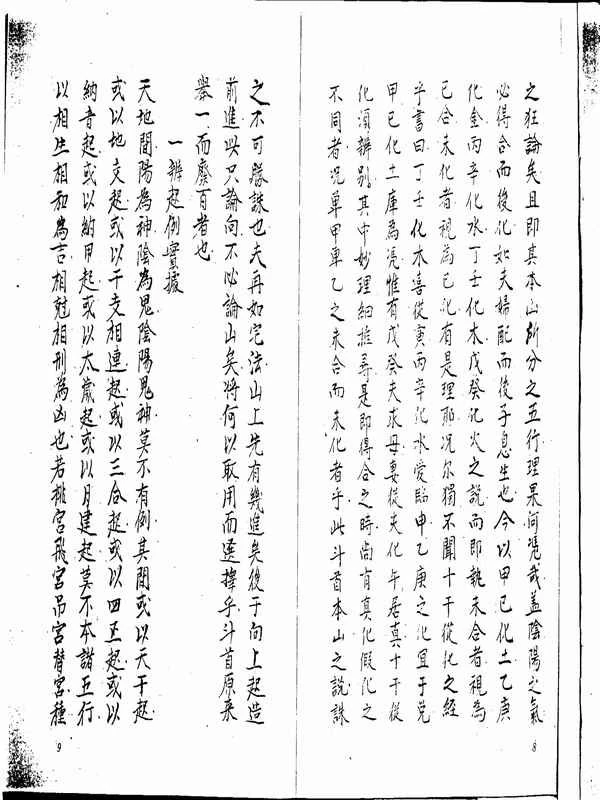 之狂論矣且即其本山所分之五行理果何憑哉盖陰陽之氣
必得合而後化如夫婦配而後子息生也今以甲已化土乙庚
化金丙辛化水丁壬化木戊癸化火之説而即執未合者視為
已合未化者視為已化有是理耶况尔獨不聞十干從化之經
乎書曰丁壬化木喜從寅丙辛化水愛臨申乙庚之化宜于兑
甲已化土庫為凴惟有戊癸夫求母妻從夫化午居真十干從
化須辨别其中妙理細推尋是即得合之時尚有真化假化之
不同者况單甲單乙之未合而未化者乎此斗首本山之説誅
8
之不可勝誅也夫再如宅法山上先有幾進矣後于向上起造
前進此只論向不必論山矣將何以取用而選擇乎斗首原来
舉一而廢百者也
一辨起例實據
天地間陽為神陰為鬼陰陽鬼神莫不有例其間或以天干起
或以地支起或以干支相連起或以三合起或以四正起或以
納音起或以納甲起或以太歲起或以月建起莫不本諸五行
以相生相和為吉相尅相刑為凶也若挑宮飛宮吊宮替宮種
9